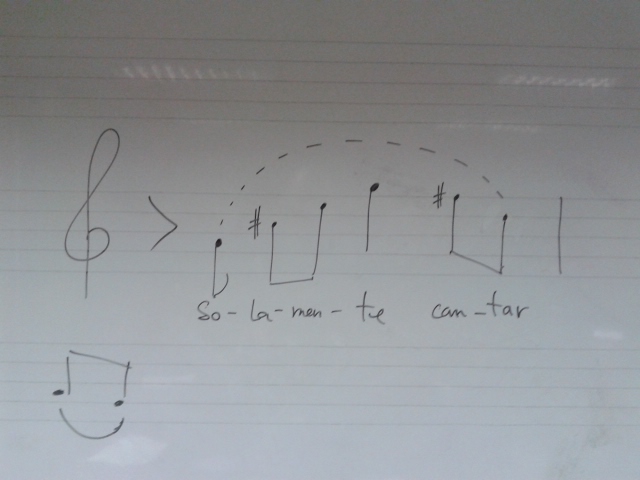 So-la-men-te can-tar